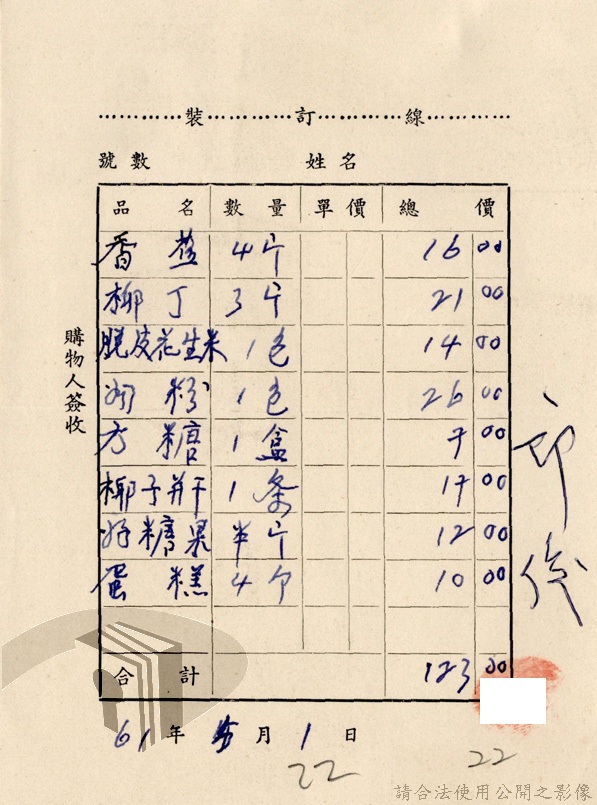 裝 訂 線
號數 姓名
品名 數量 單價 總價
香蕉 4斤 16 00
柳丁 3斤 21 00
脫皮花生米 1包 14 00
奶粉 1包 26 00
方糖 1盒 7 00
椰子并干 1条 17 00
糖果 半斤 12 00
蛋糕 4个 10 00
合計 123 00
購物人簽收
61年 月1日
22
22
請合法使用公開之影像